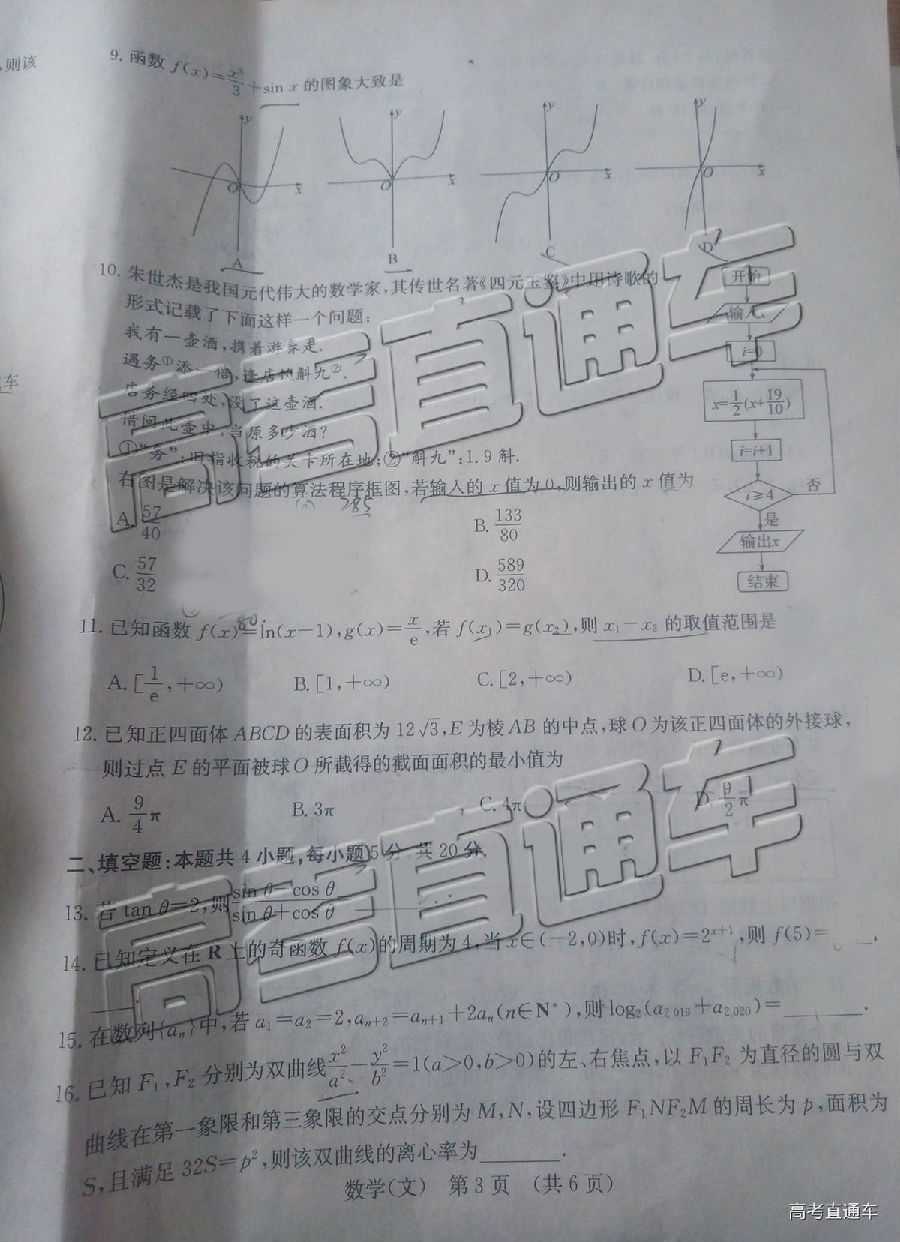 ,则该
9. 函数 f(x)=x³/3+sin x 的图象大致是
y y y y
O x O x O x O x
A B C D
10. 朱世杰是我国元代伟大的数学家,其传世名著《四元玉鉴》中用诗歌的
形式记载了下面这样一个问题:
我有一壶酒,携着游春走.
遇务①添一倍,逢店饮斛九②.
店务经四处,没了这壶酒.
借问此壶中,当原多少酒?
①“务”:旧指收税的关卡所在地;②“斛九”:1.9 斛.
右图是解决该问题的算法程序框图,若输入的 x 值为 0,则输出的 x 值为
A. 57/40
B. 133/80
C. 57/32
D. 589/320
开始
输入
i=0
x=1/2(x+19/10)
i=i+1
i≥4
否
是
输出x
结束
285
80
车
11. 已知函数 f(x)=ln(x-1),g(x)=x/e,若 f(x₁)=g(x₂),则 x₁-x₂ 的取值范围是
A. [1/e,+∞) B. [1,+∞) C. [2,+∞) D. [e,+∞)
12. 已知正四面体 ABCD 的表面积为 12√3,E 为棱 AB 的中点,球 O 为该正四面体的外接球,
则过点 E 的平面被球 O 所截得的截面面积的最小值为
A. 9/4 π B. 3π C. 4π D. 9/2 π
二、填空题:本题共 4 小题,每小题 5 分,共 20 分.
13. 若 tan θ=2,则 sin θ-cos θ/sin θ+cos θ
14. 已知定义在 R 上的奇函数 f(x)的周期为 4,当 x∈(-2,0)时,f(x)=2ˣ⁺¹,则 f(5)=____.
15. 在数列{aₙ}中,若 a₁=a₂=2,aₙ₊₂=aₙ₊₁+2aₙ(n∈N*),则 log₂(a₂₀₁₉+a₂₀₂₀)=____.
16. 已知 F₁,F₂ 分别为双曲线 x²/a²-y²/b²=1(a>0,b>0)的左、右焦点,以 F₁F₂ 为直径的圆与双
曲线在第一象限和第三象限的交点分别为 M,N,设四边形 F₁NF₂M 的周长为 p,面积为
S,且满足 32S=p²,则该双曲线的离心率为____.
数学(文) 第 3 页 (共 6 页)
高考直通车
高考直通车
高考直通车